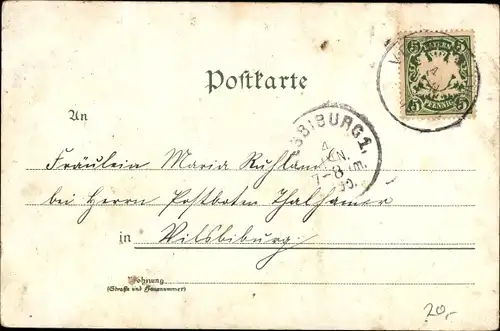 BAYERN
5 5
PFENNIG
5 5
Postkarte
SBIBURG 1.
4
JAN.
7-8
An
Fräulein Maria Ruhland
bei Herrn Postboten Thalhamer
in Vilsbiburg
Wohnung
(Straße und Hausnummer)
20,-